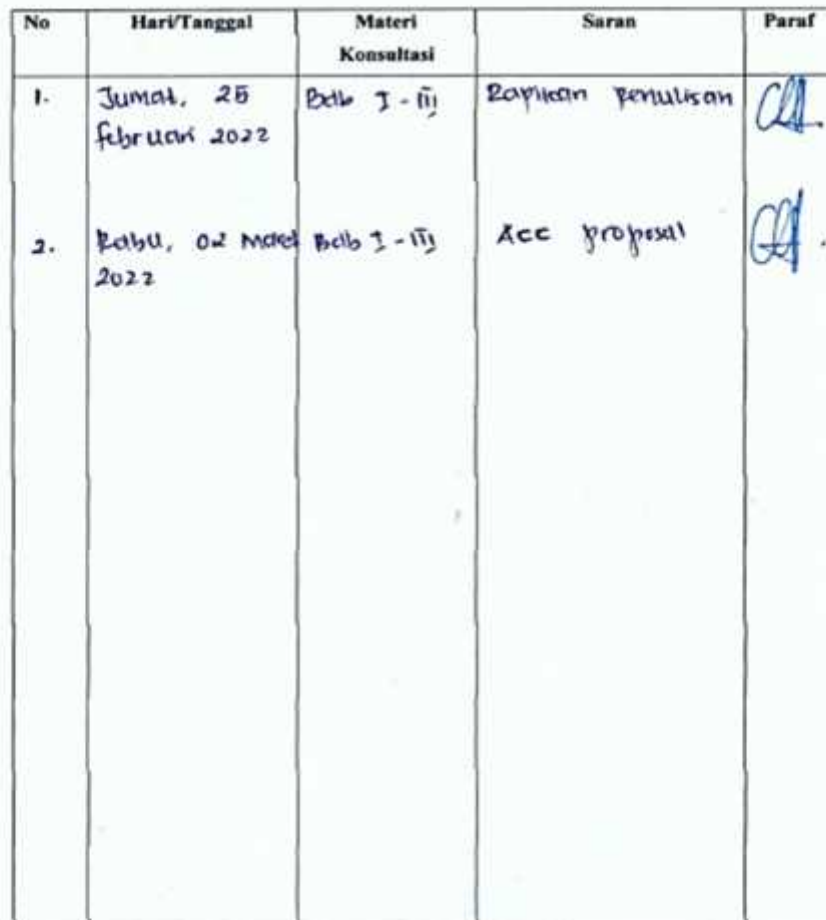 No Hari/Tanggal Materi Konsultasi Saran Paraf
1. Jumat, 25 februari 2022 Bab I - III Rapikan penulisan
2. Rabu, 02 Maret 2022 Bab I - III Acc proposal